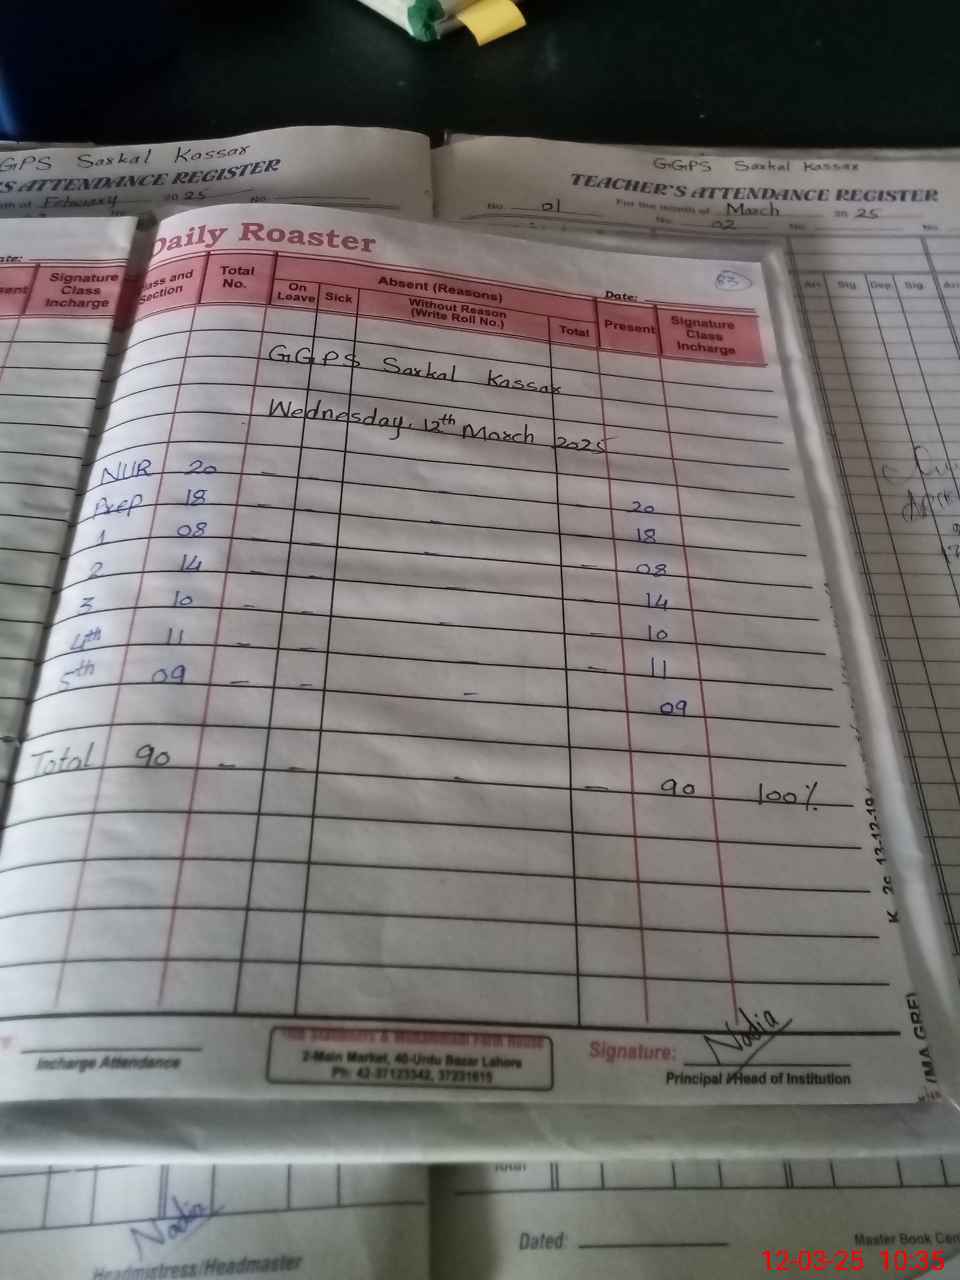 GGPS Sarkal Kassar
S ATTENDANCE REGISTER
February 20 25 No.
GGPS Sarkal Kassar
TEACHER'S ATTENDANCE REGISTER
No. 01 For the month of March 20 25
No. 02 No. No.
Signature Class Incharge
Daily Roaster
83
Date:
Class and Section Total No. Absent (Reasons) Present Signature Class Incharge
On Leave Sick Without Reason (Write Roll No.) Total
Arr. Sig. Dep. Sig.
GGPS Sarkal Kassar
Wednesday, 12th March 2025
NUR 20 - - - 20
Prep 18 - - - 18
1 08 - - - - 08
2 14 - - - - 14
3 10 - - - - 10
4th 11 - - - - 11
5th 09 - - - 09
Total 90 - - - - 90 100%
Incharge Attendance
2-Main Market, 40-Urdu Bazar Lahore
Ph: 42-37123342, 37231615
Signature: Nadia
Principal / Head of Institution
Nadia
Headmistress/Headmaster
Total
Dated:
Master Book Cen
12-03-25 10:35